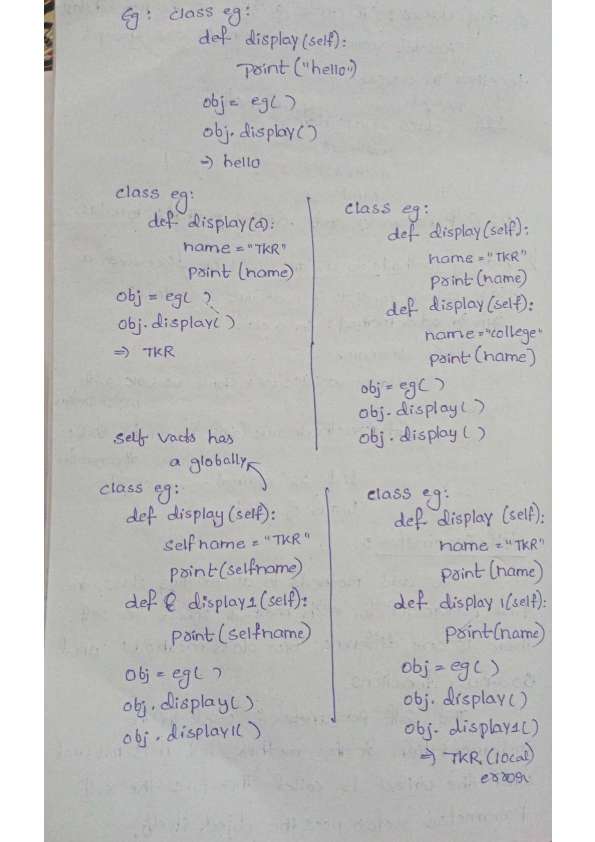 Eg: class eg:
def display(self):
print("hello")
obj = eg( )
obj. display( )
=> hello
class eg:
def display(a):
name = "TKR"
print (name)
obj = eg( )
obj. display( )
=> TKR
class eg:
def display(self):
name = "TKR"
print (name)
def display(self):
name = "college"
print (name)
obj = eg( )
obj. display( )
obj. display( )
self has
a globally
class eg:
def display(self):
selfname = "TKR"
print(selfname)
def display1(self):
print (selfname)
obj = eg( )
obj. display( )
obj. display1( )
class eg:
def display (self):
name = "TKR"
print (name)
def display 1(self):
print(name)
obj = eg( )
obj. display( )
obj. display1( )
=> TKR (local)
error